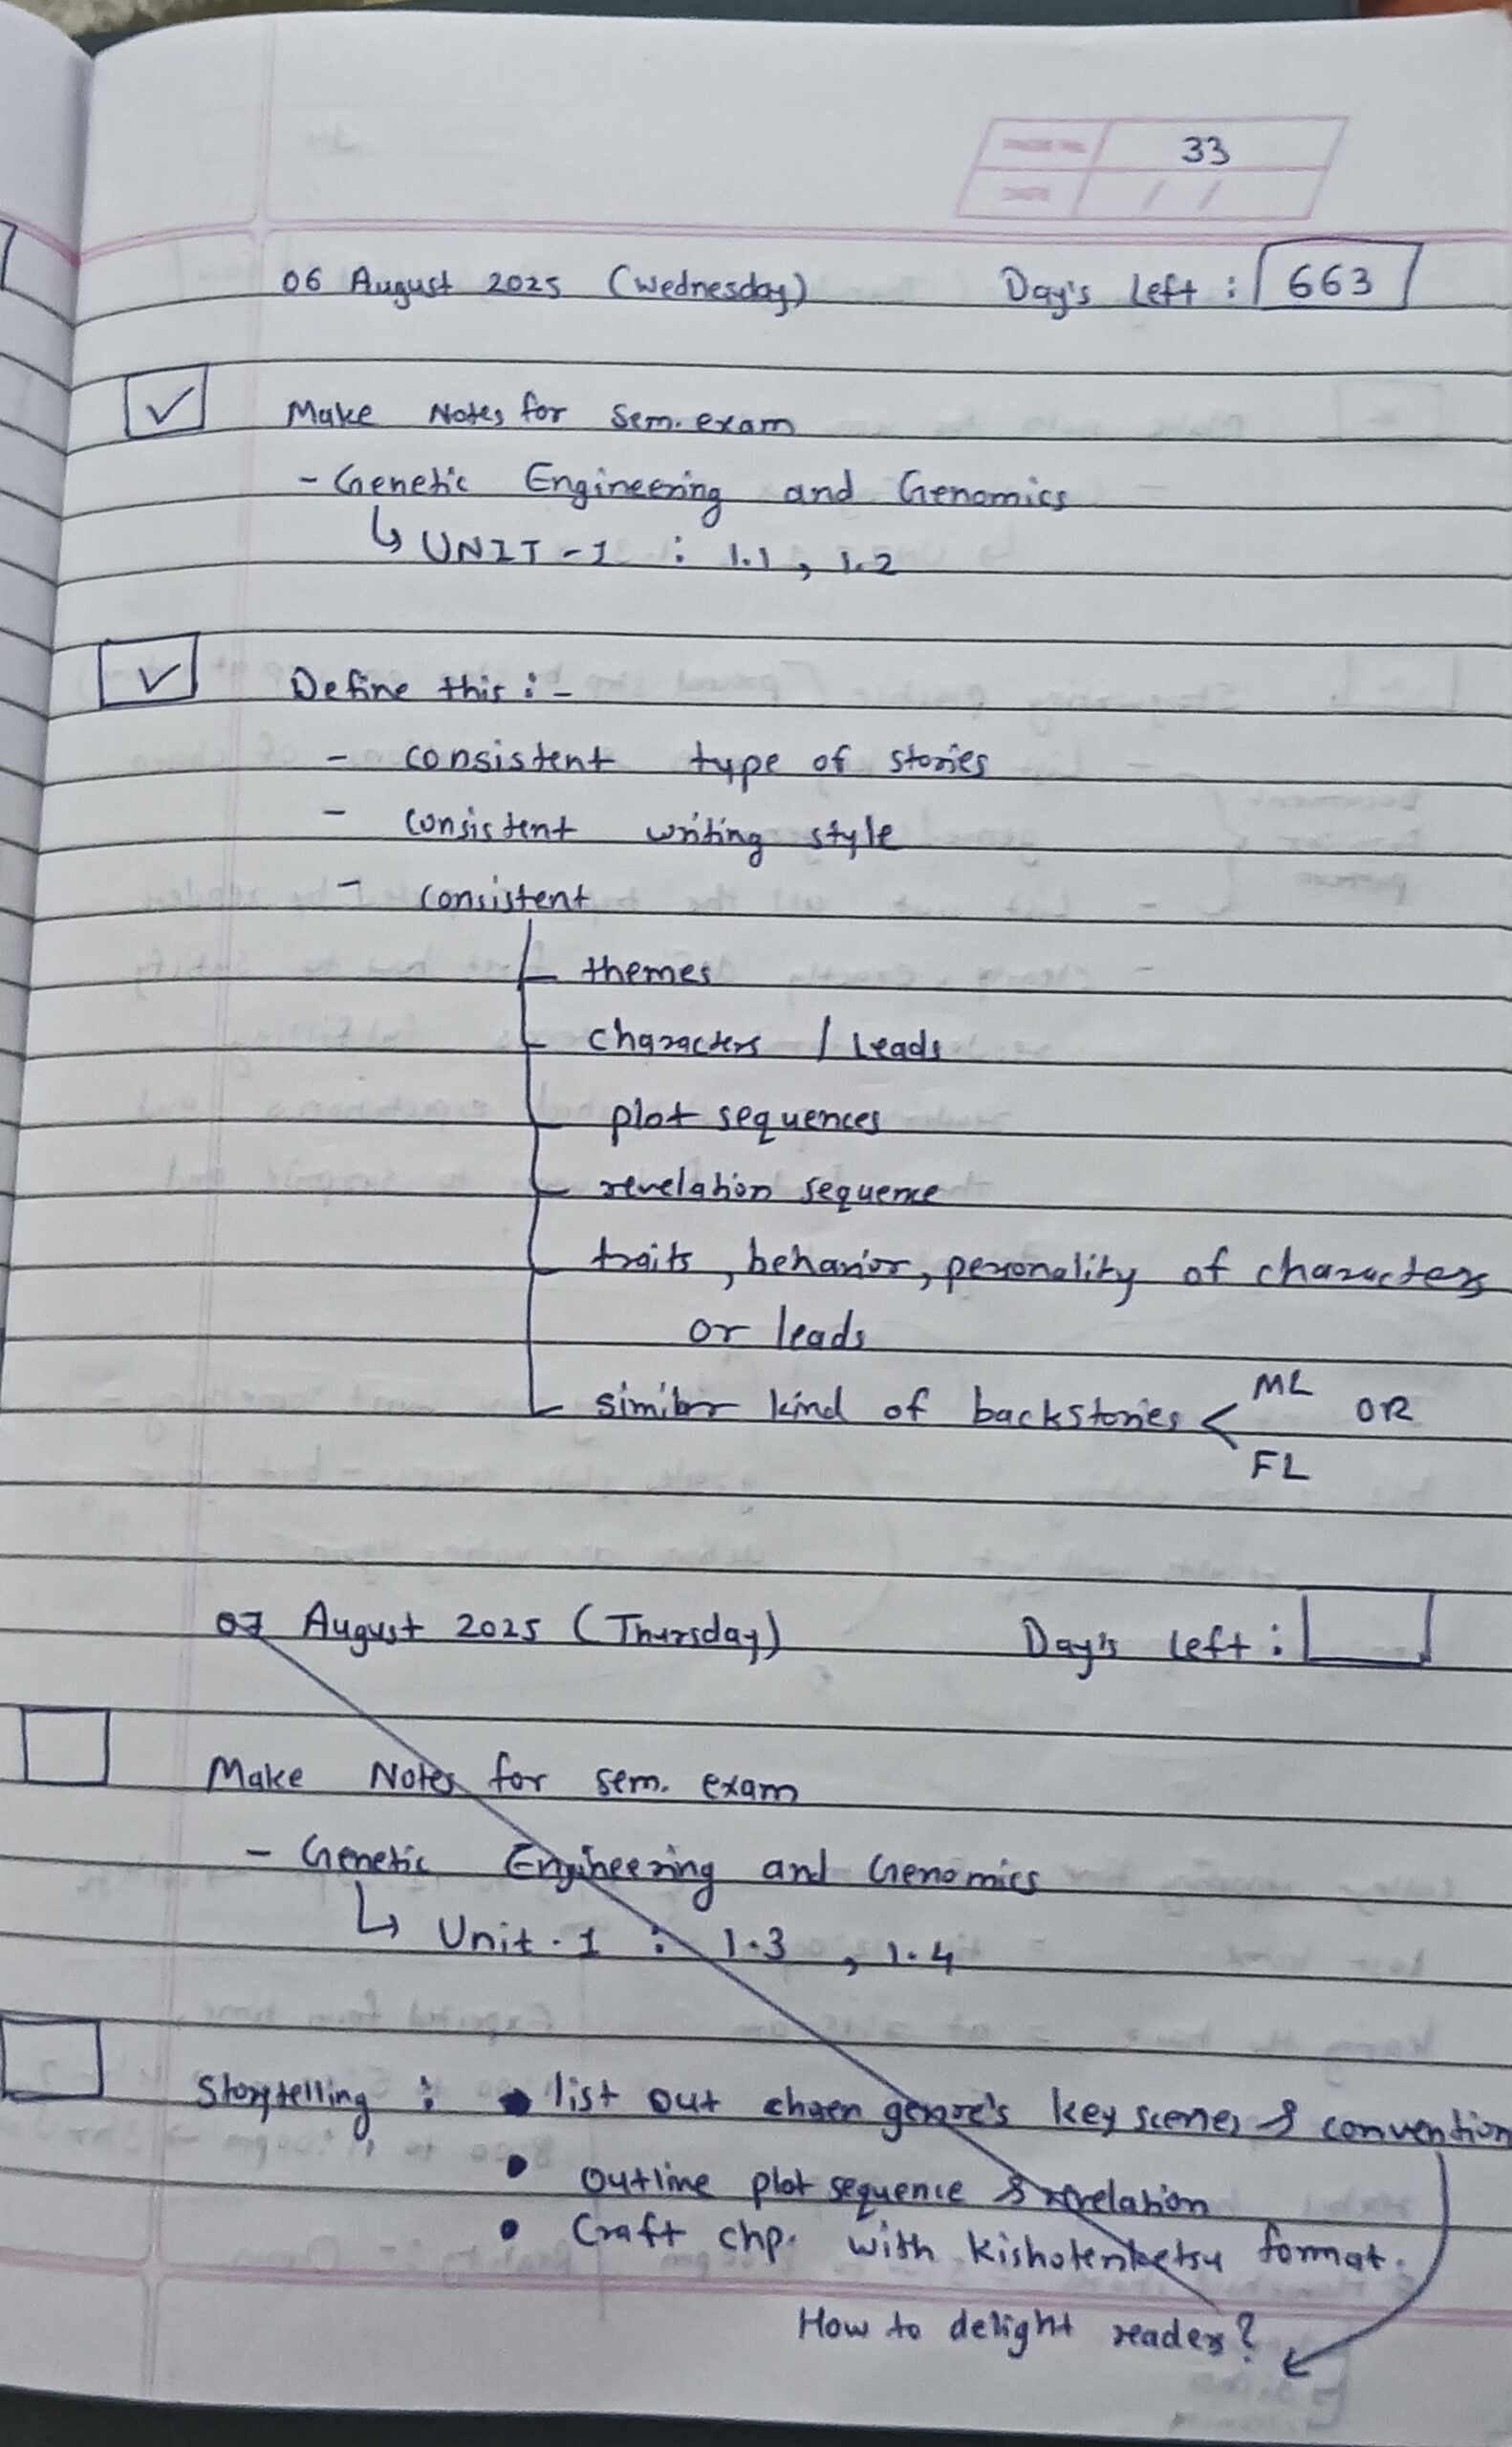 33
06 August 2025 (Wednesday) Day's Left : 663
Make Notes for sem. exam
- Genetic Engineering and Genomics
↳ UNIT-1 : 1.1, 1.2
Define this :-
- consistent type of stories
- consistent writing style
- consistent
themes
characters / Leads
plot sequences
revelation sequence
traits, behavior, personality of characters
or leads
similar kind of backstories < ML OR
FL
07 August 2025 (Thursday) Day's Left :
Make Notes for sem. exam
- Genetic Engineering and Genomics
↳ Unit-1 : 1.3, 1.4
Storytelling : • list out chosen genre's key scenes & convention
• outline plot sequence & revelation
• Craft chp. with kishotenketsu format.
How to delight readers?